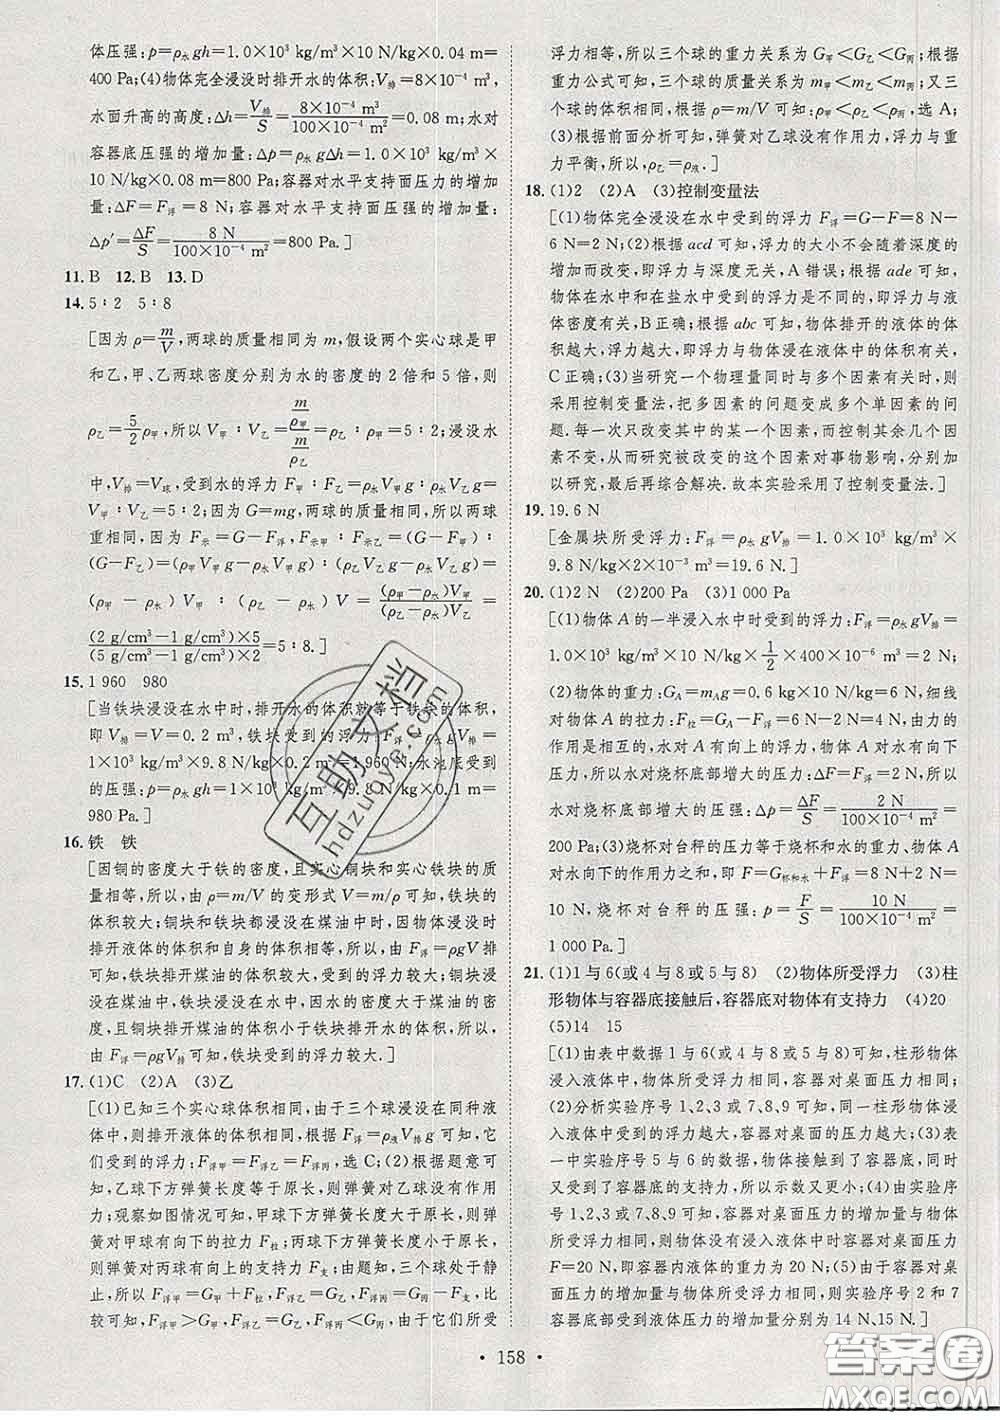 体压强:p=ρ水gh=1.0×10³ kg/m³×10 N/kg×0.04 m=
400 Pa;(4)物体完全浸没时排开水的体积:V排=8×10⁻⁴ m³,
水面升高的高度:Δh=V排/S=8×10⁻⁴ m³/100×10⁻⁴ m²=0.08 m;水对
容器底压强的增加量:Δp=ρ水gΔh=1.0×10³ kg/m³×
10 N/kg×0.08 m=800 Pa;容器对水平支持面压力的增加
量:ΔF=F浮=8 N;容器对水平支持面压强的增加量:
Δp′=ΔF/S=8 N/100×10⁻⁴ m²=800 Pa.]
11.B 12.B 13.D
14.5∶2 5∶8
[因为ρ=m/V,两球的质量相同为m,假设两个实心球是甲
和乙,甲、乙两球密度分别为水的密度的2倍和5倍,则
ρ乙=5/2ρ甲,所以V甲∶V乙=m/ρ甲/m/ρ乙=ρ乙∶ρ甲=5∶2;浸没水
中时,V排=V球,受到水的浮力F甲∶F乙=ρ水V甲g∶ρ水V乙g=
V甲∶V乙=5∶2;因为G=mg,两球的质量相同,所以两球
重相同,因为F示=G-F浮,F示甲∶F示乙=(G-F甲)∶
(G-F乙)=(ρ甲V甲g-ρ水V甲g)∶(ρ乙V乙g-ρ水V乙g)=
(ρ甲-ρ水)V甲∶(ρ乙-ρ水)V=(ρ甲-ρ水)V甲/(ρ乙-ρ水)V乙=
(2 g/cm³-1 g/cm³)×5/(5 g/cm³-1 g/cm³)×2=5∶8.]
15.1 960 980
[当铁块浸没在水中时,排开水的体积就等于铁块的体积,
即V排=V=0.2 m³,铁块受到的浮力:F浮=ρ水gV排=
1×10³ kg/m³×9.8 N/kg×0.2 m³=1 960 N;水池底受到
的压强:p=ρ水gh=1×10³ kg/m³×9.8 N/kg×0.1 m=
980 Pa.]
16.铁 铁
[因铜的密度大于铁的密度,且实心铜块和实心铁块的质
量相等,所以,由ρ=m/V的变形式V=m/ρ可知,铁块的
体积较大;铜块和铁块都浸没在煤油中时,因物体浸没时
排开液体的体积和自身的体积相等,所以,由F浮=ρgV排
可知,铁块排开煤油的体积较大,受到的浮力较大;铜块浸
没在煤油中,铁块浸没在水中时,因煤油的密度小于水的
密度,且铜块排开煤油的体积小于铁块排开水的体积,所
以,由F浮=ρgV排可知,铁块受到的浮力较大.]
17.(1)C (2)A (3)乙
[(1)已知三个实心球体积相同,由于三个球浸没在同种液
体中,则排开液体的体积相同,根据F浮=ρ液V排g可知,它
们受到的浮力:F浮甲=F浮乙=F浮丙,选C;(2)根据题意可
知,乙球下方弹簧长度等于原长,则弹簧对乙球没有作用
力;观察如图情况可知,甲球下方弹簧长度大于原长,则弹
簧对甲球有向下的拉力F拉;丙球下方弹簧长度小于原长,
则弹簧对丙球有向上的支持力F支;由题知,三个球处于静
止,所以F浮甲=G甲+F拉,F浮乙=G乙,F浮丙=G丙-F支,
比较可知,F浮甲>G甲,F浮乙=G乙,F浮丙<G丙,由于它们所受
浮力相等,所以三个球的重力关系为G甲<G乙<G丙,根据
重力公式可知,三个球的质量关系为m甲<m乙<m丙,又三
个球的体积相同,根据ρ=m/V可知:ρ甲<ρ乙<ρ丙,选A;
(3)根据前面分析可知,弹簧对乙球没有作用力,浮力与
重力平衡,所以,ρ乙=ρ液.]
18.(1)2 (2)A (3)控制变量法
[(1)物体完全浸没在水中受到的浮力F浮=G-F=8 N-
6 N=2 N;(2)根据acd可知,浮力的大小不会随着深度的
增加而改变,即浮力与深度无关,A错误;根据ade可知,
物体在水中和在盐水中受到的浮力是不同的,即浮力与液
体密度有关,B正确;根据abc可知,物体排开的液体的体
积越大,浮力越大,即浮力与物体浸在液体中的体积有关,
C正确;(3)当研究一个物理量同时与多个因素有关时,则
采用控制变量法,把多因素的问题变成多个单因素的问
题.每一次只改变其中的某一个因素,而控制其余几个因
素不变,从而研究被改变的这个因素对事物影响,分别加
以研究,最后再综合解决.故本实验采用了控制变量法.]
19.19.6 N
[金属块所受浮力:F浮=ρ水gV排=1.0×10³ kg/m³×
9.8 N/kg×2×10⁻³ m³=19.6 N.]
20.(1)2 N (2)200 Pa (3)1 000 Pa
[(1)物体A的一半浸入水中时受到的浮力:F浮=ρ水gV排=
1.0×10³ kg/m³×10 N/kg×1/2×400×10⁻⁶ m³=2 N;
(2)物体的重力:GA=mAg=0.6 kg×10 N/kg=6 N,细线
对物体A的拉力:F拉=GA-F浮=6 N-2 N=4 N,由力的
作用是相互的,水对A有向上的浮力,A对水有向下
压力,则水对烧杯底部增大的压力:ΔF=F浮=2 N,所以
水对烧杯底部增大的压强:Δp=ΔF/S=2 N/100×10⁻⁴ m²=
200 Pa;(3)烧杯对台秤的压力等于烧杯和水的重力、物体A
对水向下的作用力之和,即F=G杯和水+F浮=8 N+2 N=
10 N,烧杯对台秤的压强:p=F/S=10 N/100×10⁻⁴ m²=
1 000 Pa.]
21.(1)1与6(或4与8或5与8) (2)物体所受浮力 (3)柱
形物体与容器底接触后,容器底对物体有支持力 (4)20
(5)14 15
[(1)由表中数据1与6(或4与8或5与8)可知,柱形物体
浸入液体中,物体所受浮力相同,容器对桌面压力相同;
(2)分析实验序号1、2、3或7、8、9可知,同一柱形物体浸
入液体中受到的浮力越大,容器对桌面的压力越大;(3)表
一中实验序号5与6的实验中,物体接触到了容器底,同时
又受到了容器底的支持力,所以示数又更小;(4)由实验序
号1、2、3或7、8、9可知,容器对桌面压力的增加量与物体
所受浮力相等,则物体没有浸入液体中时容器对桌面压力
F=20 N,即容器内液体的重力为20 N;(5)由于容器对桌
面压力的增加量与物体所受浮力相等,则实验序号2和7
容器底部受到液体压力的增加量分别为14 N、15 N.]
• 158 •
互助文档
hdzuoye.com
答案圈
MXQE.COM